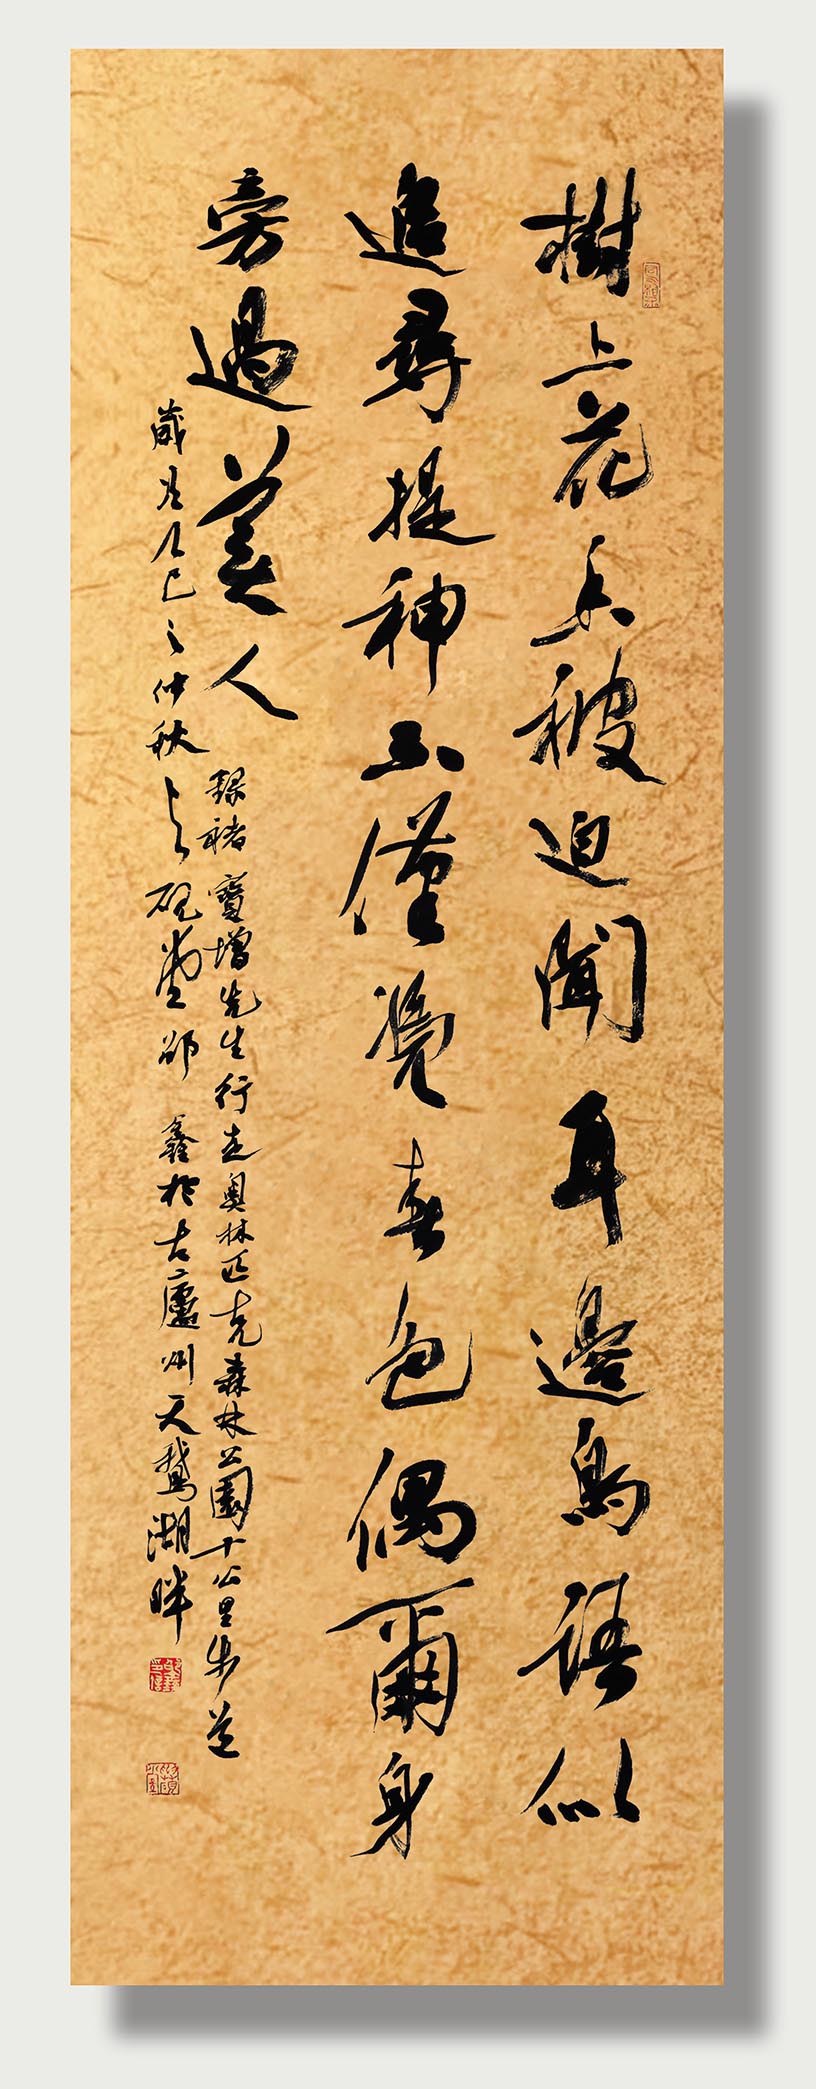 樹上花香被迫聞耳邊鳥語似
追尋提神不僅覺春色偶爾身
旁過美人
録褚寶增先生行走奧林匹克森林公園十公里步道
歲次乙巳之仲秋上硯堂邵鑫於古廬州天鵝湖畔